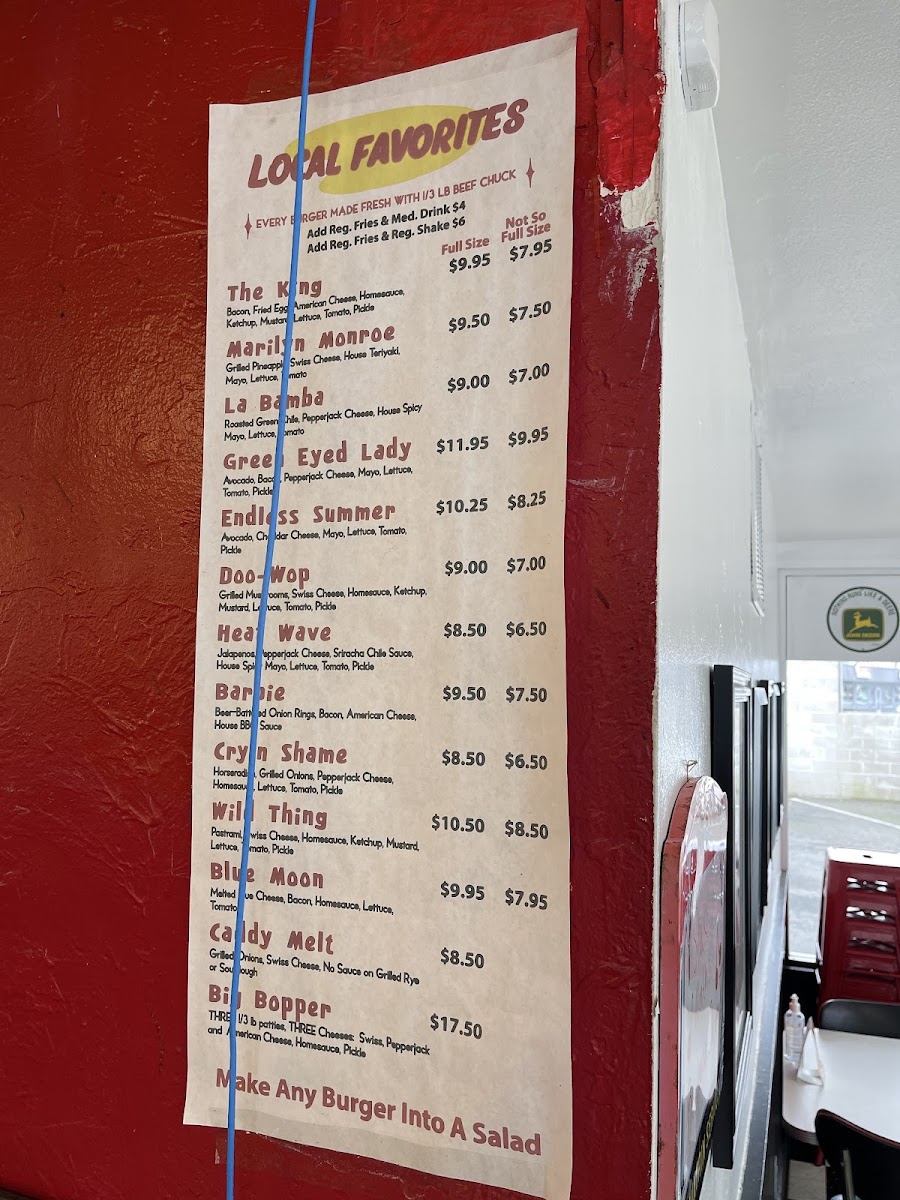 LOCAL FAVORITES
EVERY BURGER MADE FRESH WITH 1/3 LB BEEF CHUCK
Add Reg. Fries & Med. Drink $4
Add Reg. Fries & Reg. Shake $6
Full Size Not So Full Size
The King $9.95 $7.95
Bacon, Fried Egg, American Cheese, Homesauce,
Ketchup, Mustard, Lettuce, Tomato, Pickle
Marilyn Monroe $9.50 $7.50
Grilled Pineapple, Swiss Cheese, House Teriyaki,
Mayo, Lettuce, Tomato
La Bamba $9.00 $7.00
Roasted Green Chile, Pepperjack Cheese, House Spicy
Mayo, Lettuce, Tomato
Green Eyed Lady $11.95 $9.95
Avocado, Bacon, Pepperjack Cheese, Mayo, Lettuce,
Tomato, Pickle
Endless Summer $10.25 $8.25
Avocado, Cheddar Cheese, Mayo, Lettuce, Tomato,
Pickle
Doo-Wop $9.00 $7.00
Grilled Mushrooms, Swiss Cheese, Homesauce, Ketchup,
Mustard, Lettuce, Tomato, Pickle
Heat Wave $8.50 $6.50
Jalapenos, Pepperjack Cheese, Sriracha Chile Sauce,
House Spicy Mayo, Lettuce, Tomato, Pickle
Barbie $9.50 $7.50
Beer-Battered Onion Rings, Bacon, American Cheese,
House BBQ Sauce
Cryin Shame $8.50 $6.50
Horseradish, Grilled Onions, Pepperjack Cheese,
Homesauce, Lettuce, Tomato, Pickle
Wild Thing $10.50 $8.50
Pastrami, Swiss Cheese, Homesauce, Ketchup, Mustard,
Lettuce, Tomato, Pickle
Blue Moon $9.95 $7.95
Melted Blue Cheese, Bacon, Homesauce, Lettuce,
Tomato
Caddy Melt $8.50
Grilled Onions, Swiss Cheese, No Sauce on Grilled Rye
or Sourdough
Big Bopper $17.50
THREE 1/3 lb patties, THREE Cheeses: Swiss, Pepperjack
and American Cheese, Homesauce, Pickle
Make Any Burger Into A Salad
NOTHING RUNS LIKE A DEERE
JOHN DEERE